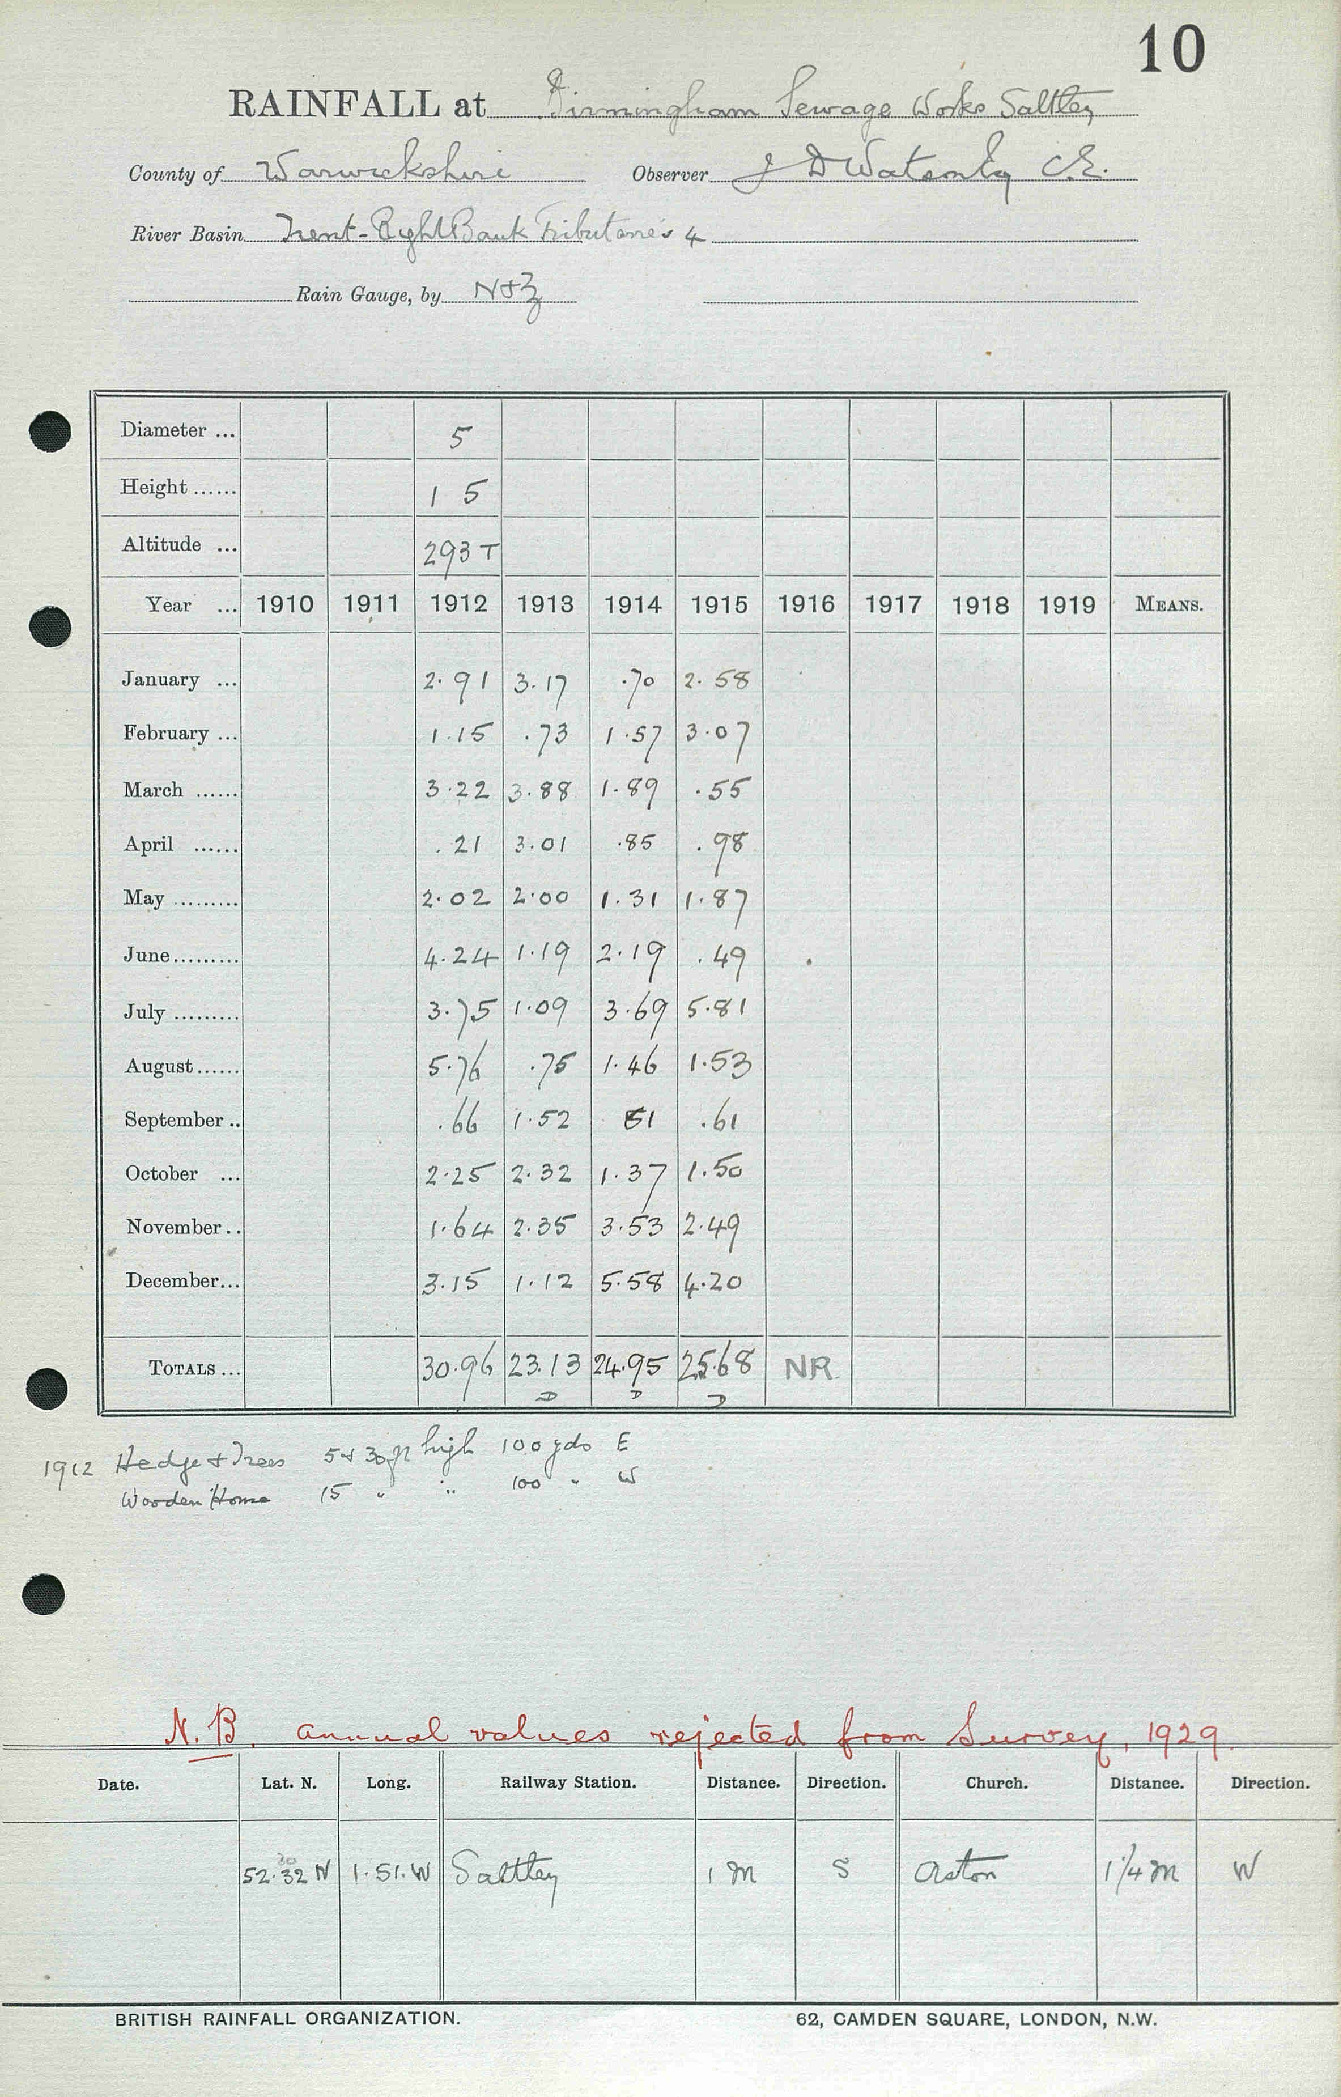 10
RAINFALL at Birmingham Sewage Works Saltley
County of Warwickshire Observer J D Watson Esq C.E.
River Basin Trent-Right Bank Tributaries 4
Rain Gauge, by N&Z
Diameter ... 5
Height ...... 1 5
Altitude ... 293 T
Year ... 1910 1911 1912 1913 1914 1915 1916 1917 1918 1919 MEANS.
January ... 2.91 3.17 .70 2.58
February ... 1.15 .73 1.57 3.07
March ...... 3.22 3.88 1.89 .55
April ...... .21 3.01 .85 .98
May ......... 2.02 2.00 1.31 1.87
June ......... 4.24 1.19 2.19 .49
July ......... 3.75 1.09 3.69 5.81
August ...... 5.76 .75 1.46 1.53
September .. .66 1.52 81 .61
October ... 2.25 2.32 1.37 1.50
November .. 1.64 2.35 3.53 2.49
December ... 3.15 1.12 5.58 4.20
TOTALS ... 30.96 23.13 24.95 25.68 NR
D D D
1912 Hedge & Trees 5 & 30 ft high 100 yds E
Wooden House 15 " " 100 " W
N.B. annual values rejected from Survey, 1929.
Date. Lat. N. Long. Railway Station. Distance. Direction. Church. Distance. Direction.
30
52.32 N 1.51.W Saltley 1 m S Aston 1 1/4 m W
BRITISH RAINFALL ORGANIZATION. 62, CAMDEN SQUARE, LONDON, N.W.